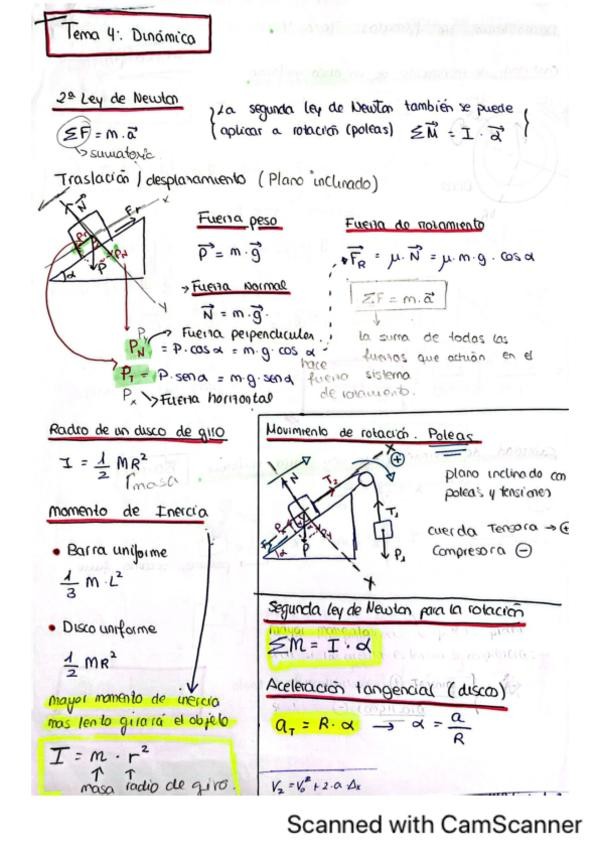 Tema 4: Dinámica
2ª Ley de Newton
ΣF = m·a⃗
sumatorio
La segunda ley de Newton también se puede
aplicar a rotación (poleas) ΣM⃗ = I · α⃗
Traslación / desplazamiento (Plano inclinado)
N⃗
Fr
X
P⃗
α
Y
Fuerza peso
P⃗ = m·g⃗
Fuerza Normal
N⃗ = m·g⃗.
Fuerza de rozamiento
F⃗R = μ·N⃗ = μ·m·g·cos α
ΣF = m·a⃗
la suma de todas las
fuerzas que actúan en el
sistema
de rozamiento.
Fuerza perpendicular.
PN = P·cos α = m·g·cos α
hace
PT = P·sen α = m·g·sen α
fuerza
Px Fuerza horizontal
Radio de un disco de giro
I = 1/2 MR²
masa
momento de Inercia
• Barra uniforme
1/3 M·L²
• Disco uniforme
1/2 MR²
mayor momento de inercia
mas lento girará el objeto
I = m · r²
masa radio de giro.
Movimiento de rotación. Poleas
X
+
N
T2
T1
P
α
P1
Y
plano inclinado con
poleas y tensiones
cuerda Tensora → +
Compresora −
Segunda ley de Newton para la rotación
ΣM = I · α
Aceleración tangencial (disco)
aT = R·α → α = a/R
V2 = V0² + 2·a·Δx
Scanned with CamScanner